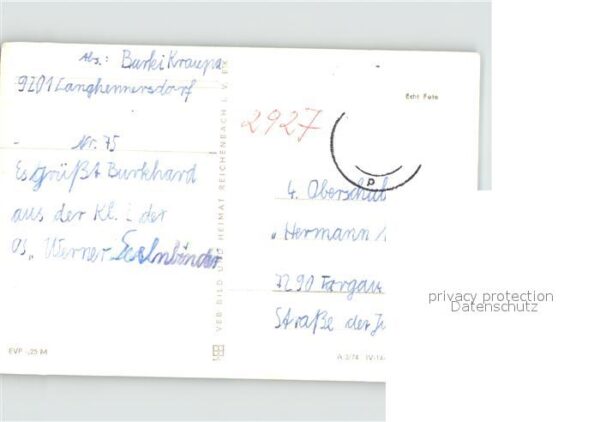 Abs.: Burki Kraupa
9201 Langhennersdorf
- Nr. 75
Es grüßt Burkhard
aus der Kl. der
OS „Werner
EVP -,25 M
VEB BILD UND HEIMAT REICHENBACH I. V.
Echt Foto
2927
P
4. Oberschul
„Hermann
7290 Torgau
Straße der
A 3/74 IV-14-
privacy protection
Datenschutz